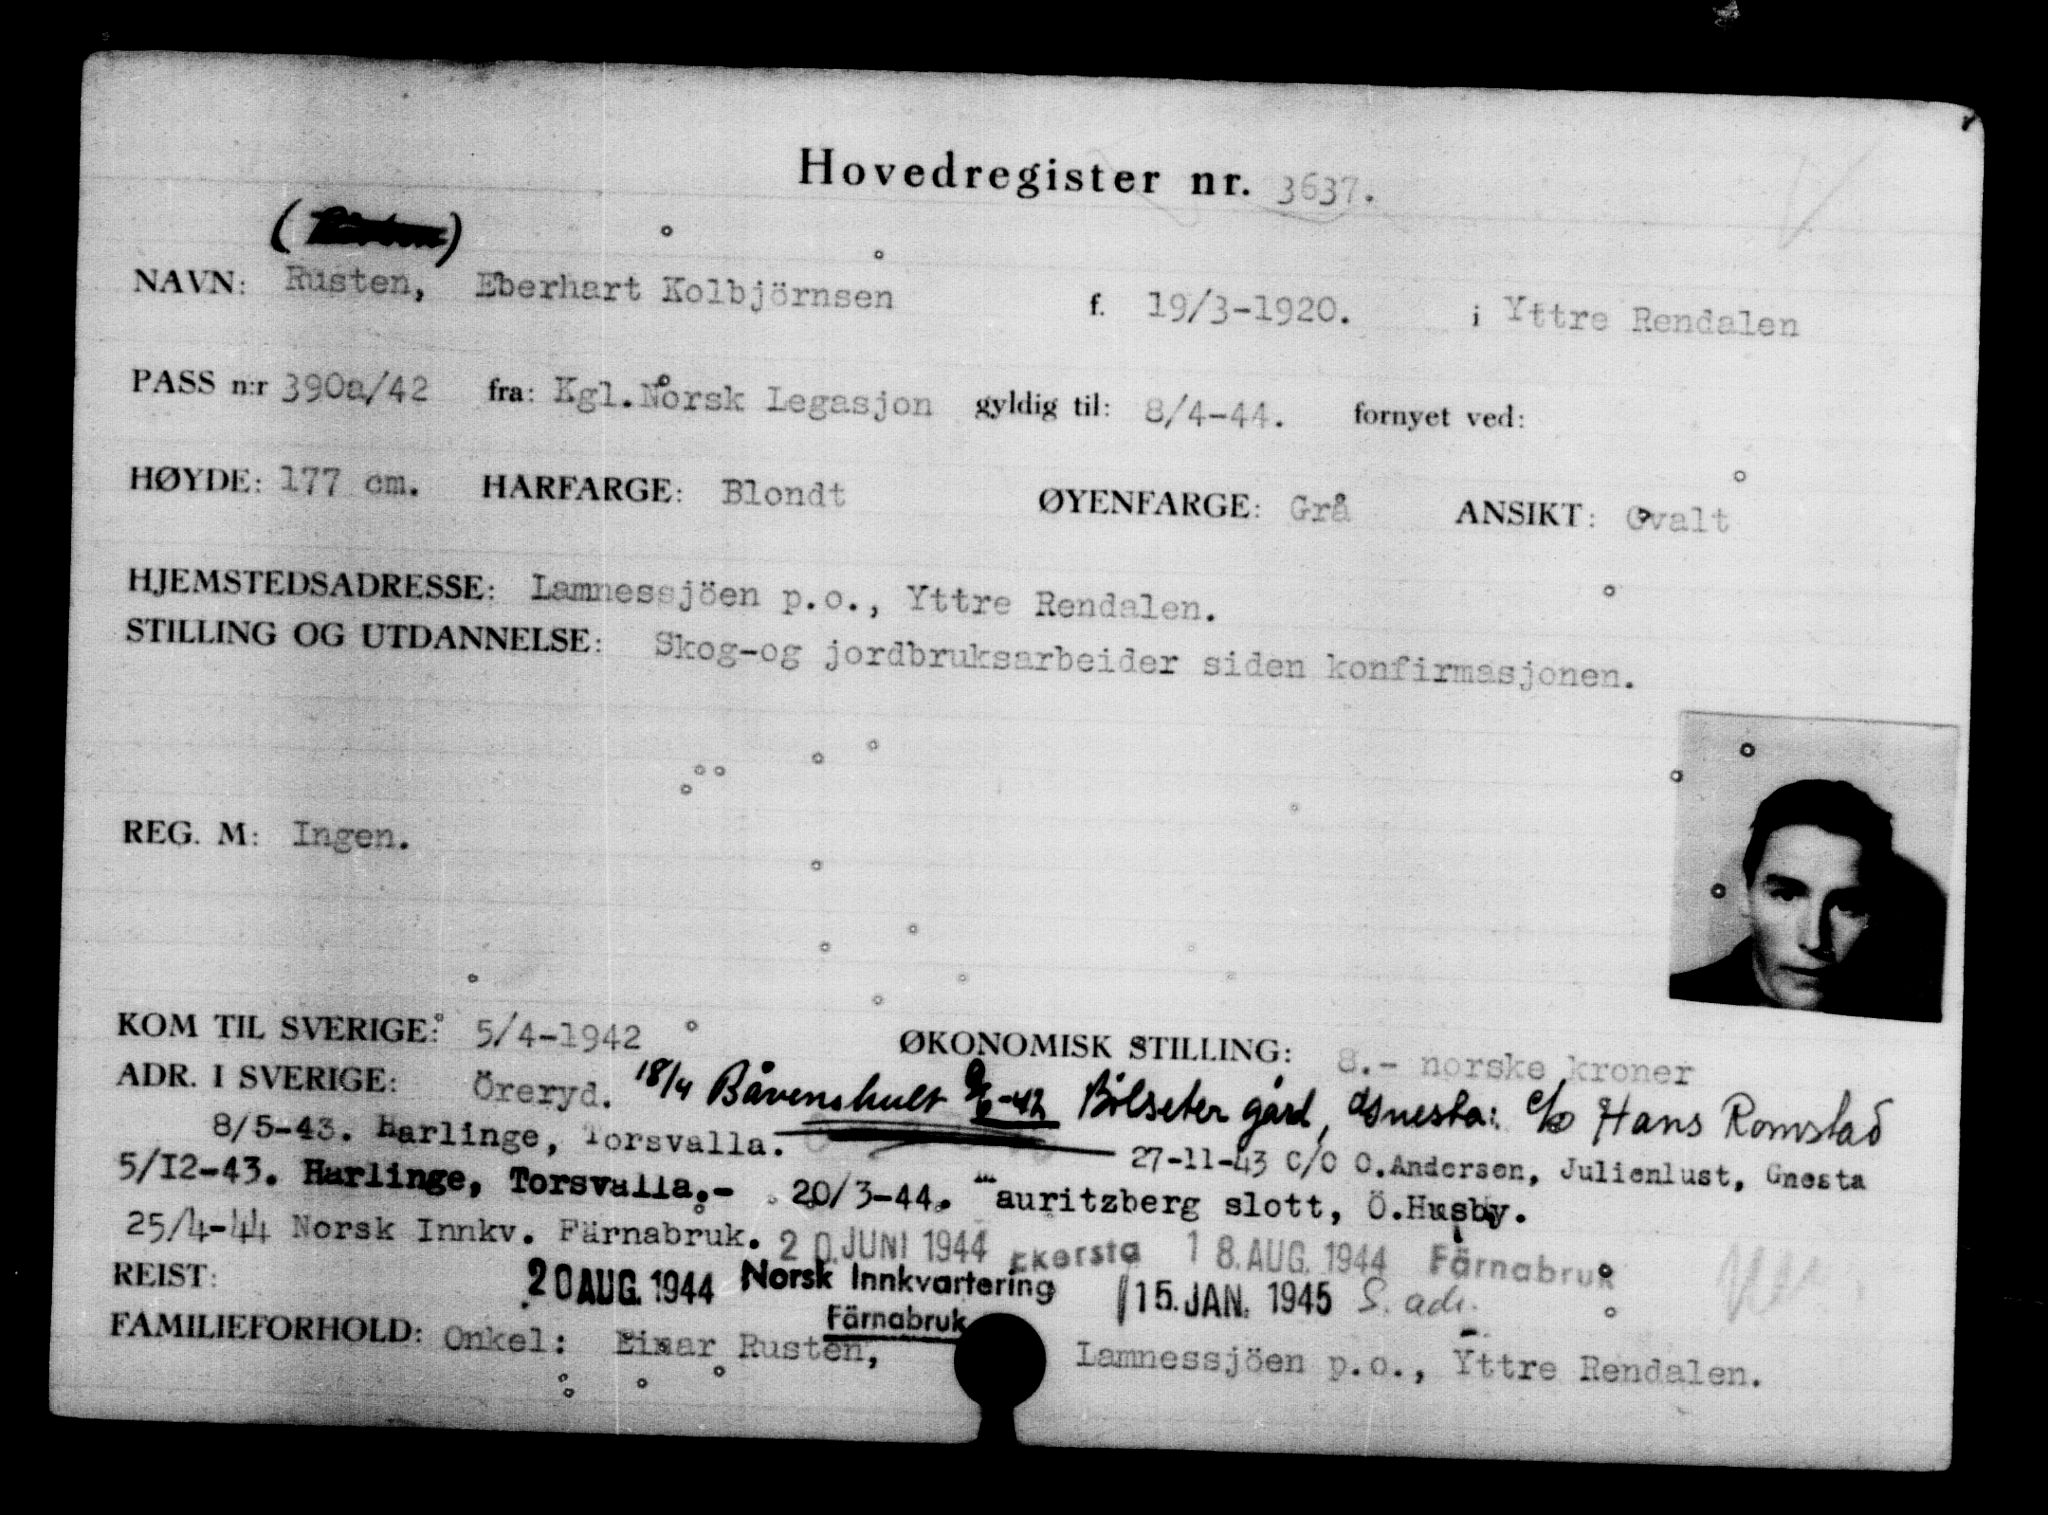 Hovedregister nr. 3637.
NAVN: Rusten, Eberhart Kolbjörnsen f. 19/3-1920. i Yttre Rendalen
PASS n:r 390a/42 fra: Kgl.Norsk Legasjon gyldig til: 8/4-44. fornyet ved:
HØYDE: 177 cm. HARFARGE: Blondt ØYENFARGE: Grå ANSIKT: Ovalt
HJEMSTEDSADRESSE: Lamnessjöen p.o., Yttre Rendalen.
STILLING OG UTDANNELSE: Skog-og jordbruksarbeider siden konfirmasjonen.
REG. M: Ingen.
KOM TIL SVERIGE: 5/4-1942 ØKONOMISK STILLING: 8.- norske kroner
ADR. I SVERIGE: Öreryd. 18/4 Båvenshult 9/6-42 Bölseter gård, Gnesta: c/o Hans Romstad
8/5-43. Harlinge, Torsvalla. 27-11-43 C/O O.Andersen, Julienlust, Gnesta
5/12-43. Harlinge, Torsvalla.- 20/3-44. Mauritzberg slott, Ö.Husby.
25/4-44 Norsk Innkv. Färnabruk. 20.JUNI 1944 Ekersta 18.AUG.1944 Färnabruk
REIST: 20 AUG. 1944 Norsk Innkvartering 15.JAN. 1945 S. adr.
Färnabruk
FAMILIEFORHOLD: Onkel: Einar Rusten, Lamnessjöen p.o., Yttre Rendalen.